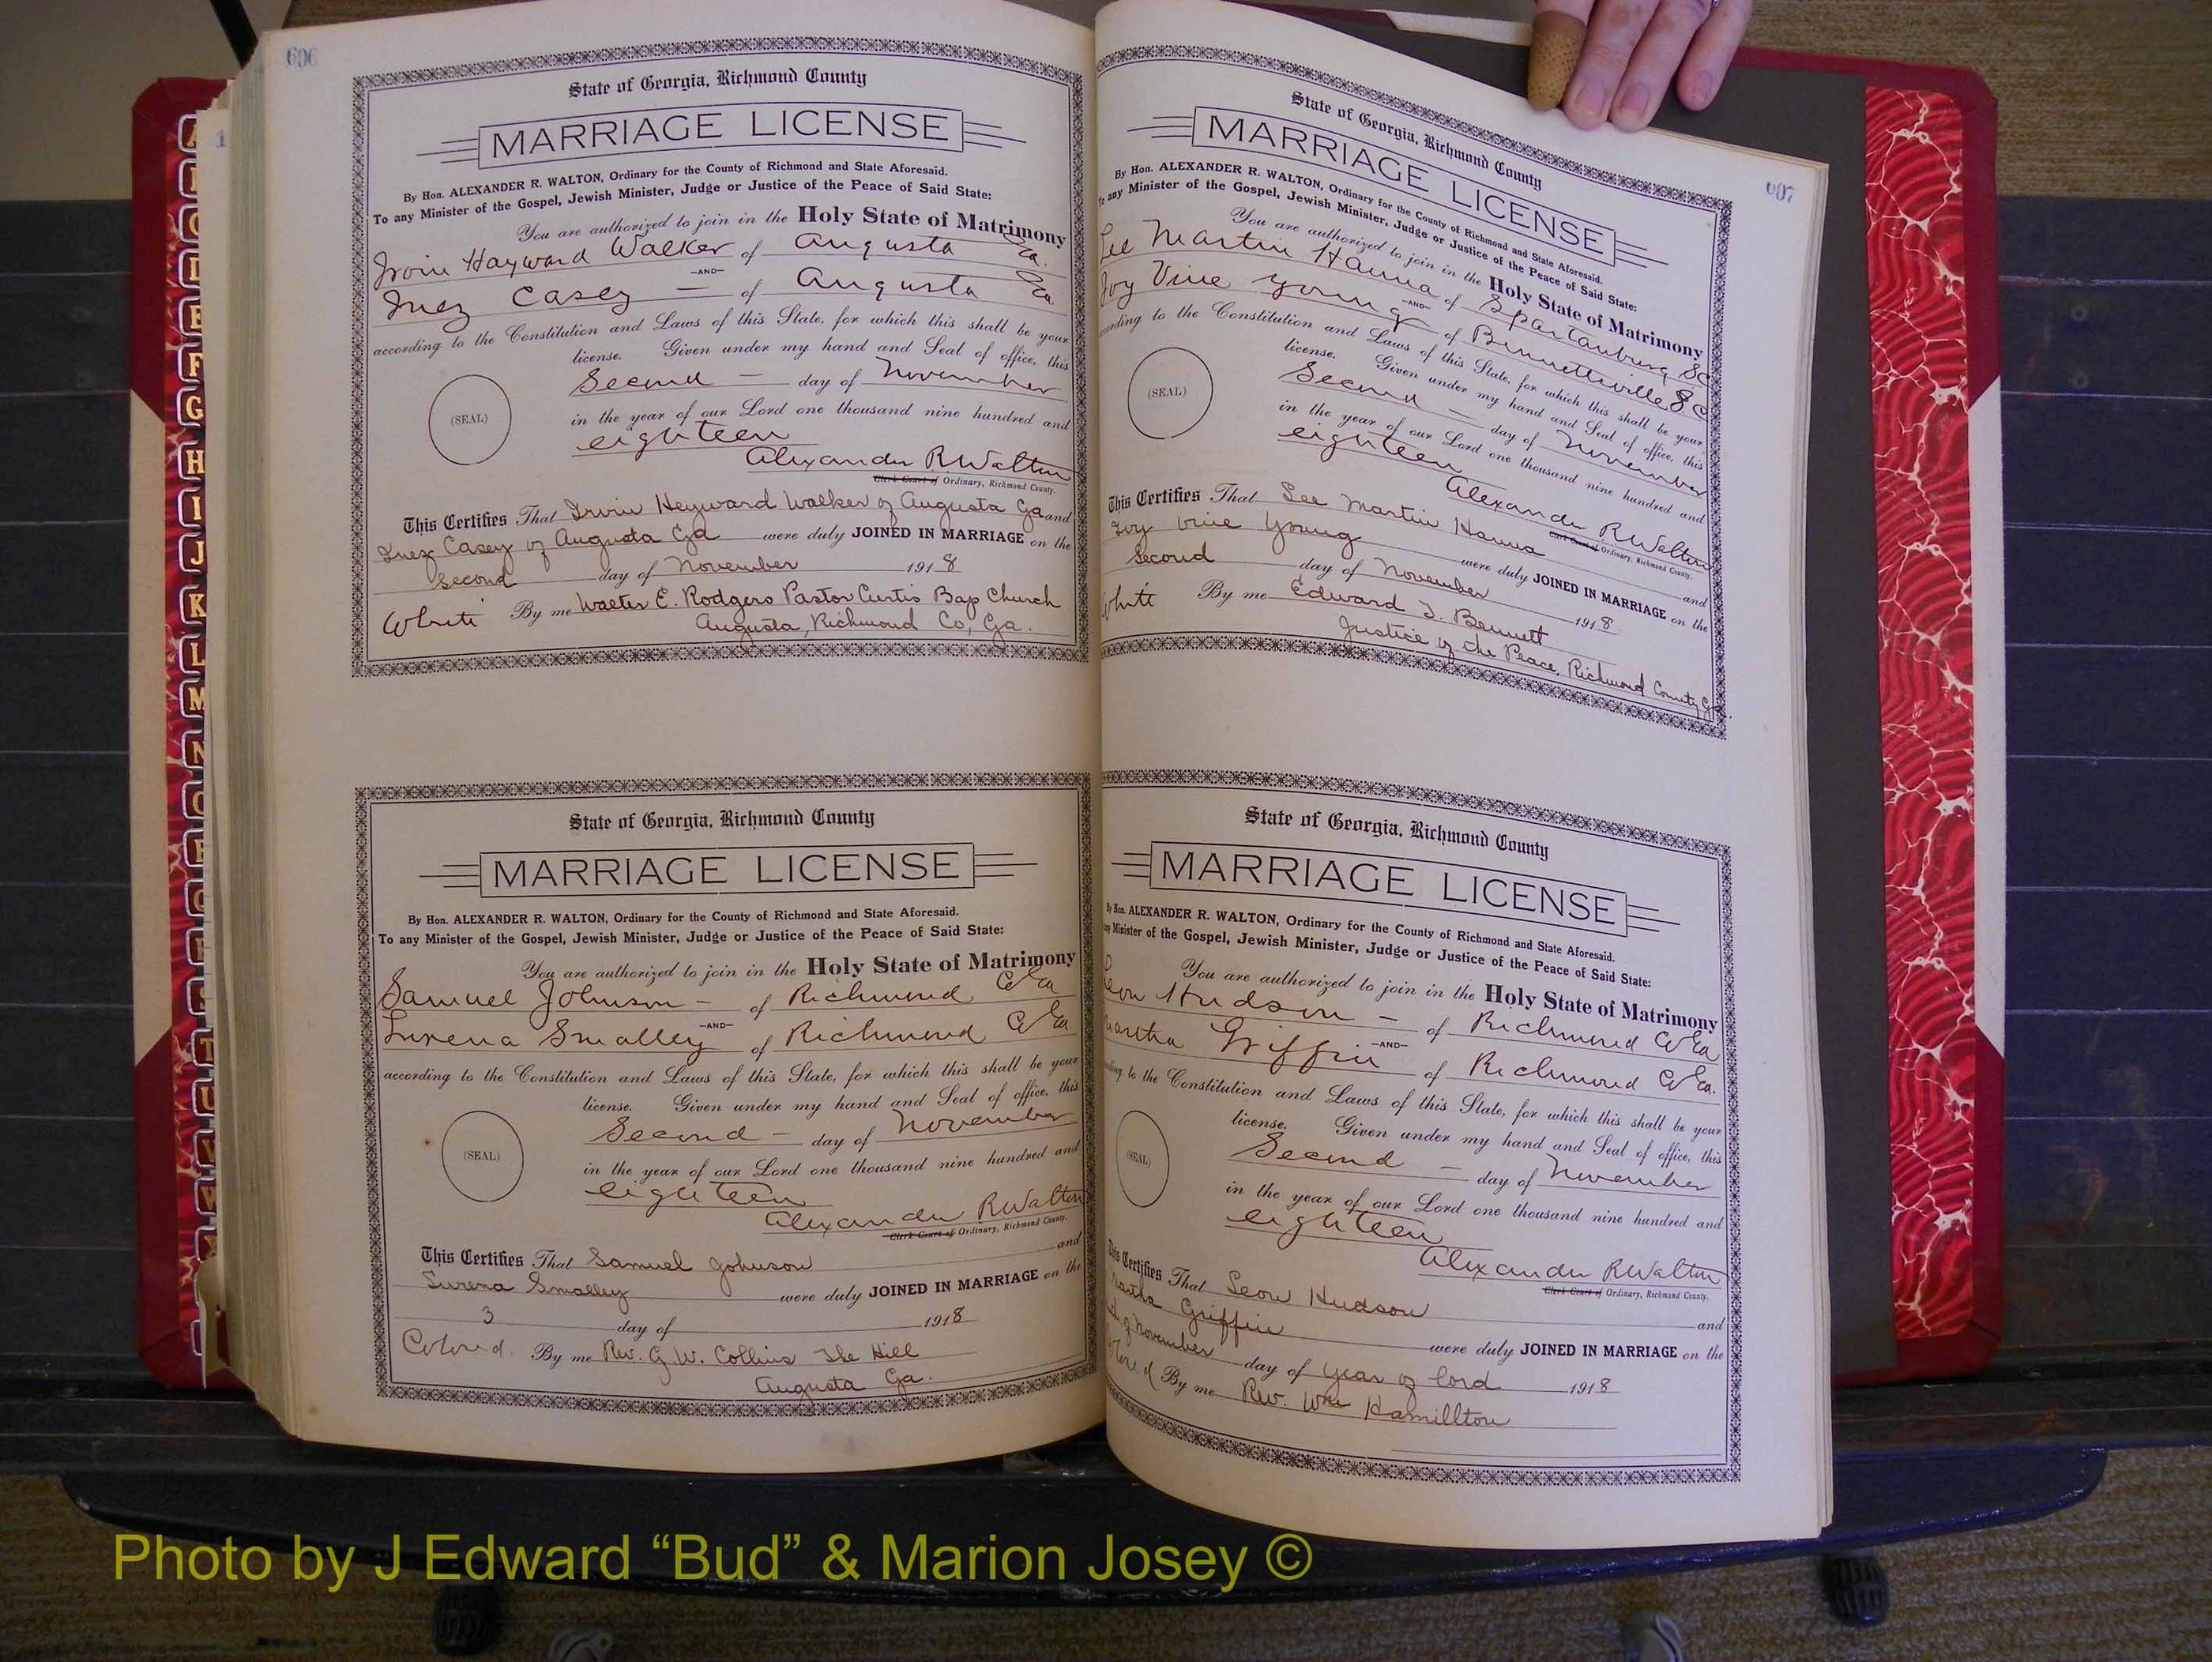 606
State of Georgia, Richmond County
MARRIAGE LICENSE
By Hon. ALEXANDER R. WALTON, Ordinary for the County of Richmond and State Aforesaid.
To any Minister of the Gospel, Jewish Minister, Judge or Justice of the Peace of Said State:
You are authorized to join in the Holy State of Matrimony
Irvin Hayward Walker of Augusta Ga.
—AND—
Inez Casey — of Augusta Ga.
according to the Constitution and Laws of this State, for which this shall be your
license. Given under my hand and Seal of office, this
Second — day of November
(SEAL)
in the year of our Lord one thousand nine hundred and
eighteen
Alexander R Walton
Clerk Court of Ordinary, Richmond County.
This Certifies That Irvin Heyward Walker of Augusta Ga and
Inez Casey of Augusta Ga were duly JOINED IN MARRIAGE on the
Second day of November 1918
White By me Walter E. Rodgers Pastor Curtis Bap Church
Augusta, Richmond Co, Ga.
State of Georgia, Richmond County
MARRIAGE LICENSE
By Hon. ALEXANDER R. WALTON, Ordinary for the County of Richmond and State Aforesaid.
To any Minister of the Gospel, Jewish Minister, Judge or Justice of the Peace of Said State:
You are authorized to join in the Holy State of Matrimony
Samuel Johnson — of Richmond Co Ga
—AND—
Lurena Smalley of Richmond Co Ga
according to the Constitution and Laws of this State, for which this shall be your
license. Given under my hand and Seal of office, this
Second — day of November
(SEAL)
in the year of our Lord one thousand nine hundred and
eighteen
Alexander R Walton
Clerk Court of Ordinary, Richmond County.
This Certifies That Samuel Johnson and
Surena Smalley were duly JOINED IN MARRIAGE on the
3 day of 1918
Colored. By me Rev. G. W. Collins The Hill
Augusta Ga.
607
State of Georgia, Richmond County
MARRIAGE LICENSE
By Hon. ALEXANDER R. WALTON, Ordinary for the County of Richmond and State Aforesaid.
To any Minister of the Gospel, Jewish Minister, Judge or Justice of the Peace of Said State:
You are authorized to join in the Holy State of Matrimony
Lee Martin Hanna of Spartanburg SC
—AND—
Ivy Vine Young of Bennettsville S C
according to the Constitution and Laws of this State, for which this shall be your
license. Given under my hand and Seal of office, this
Second — day of November
(SEAL)
in the year of our Lord one thousand nine hundred and
eighteen
Alexander R Walton
Clerk Court of Ordinary, Richmond County.
This Certifies That Lee Martin Hanna and
Ivy Vine Young were duly JOINED IN MARRIAGE on the
Second day of November 1918
White By me Edward J. Bennett
Justice of the Peace, Richmond County Ga.
State of Georgia, Richmond County
MARRIAGE LICENSE
By Hon. ALEXANDER R. WALTON, Ordinary for the County of Richmond and State Aforesaid.
any Minister of the Gospel, Jewish Minister, Judge or Justice of the Peace of Said State:
You are authorized to join in the Holy State of Matrimony
Leon Hudson — of Richmond Co Ga
—AND—
Martha Griffin of Richmond Co Ga.
according to the Constitution and Laws of this State, for which this shall be your
license. Given under my hand and Seal of office, this
Second — day of November
(SEAL)
in the year of our Lord one thousand nine hundred and
eighteen
Alexander R Walton
Clerk Court of Ordinary, Richmond County.
This Certifies That Leon Hudson and
Martha Griffin were duly JOINED IN MARRIAGE on the
of November day of year of lord 1918
Colored By me Rev. Wm Hamillton
A
E
F
G
H
I
J
K
L
M
N
Photo by J Edward “Bud” & Marion Josey ©